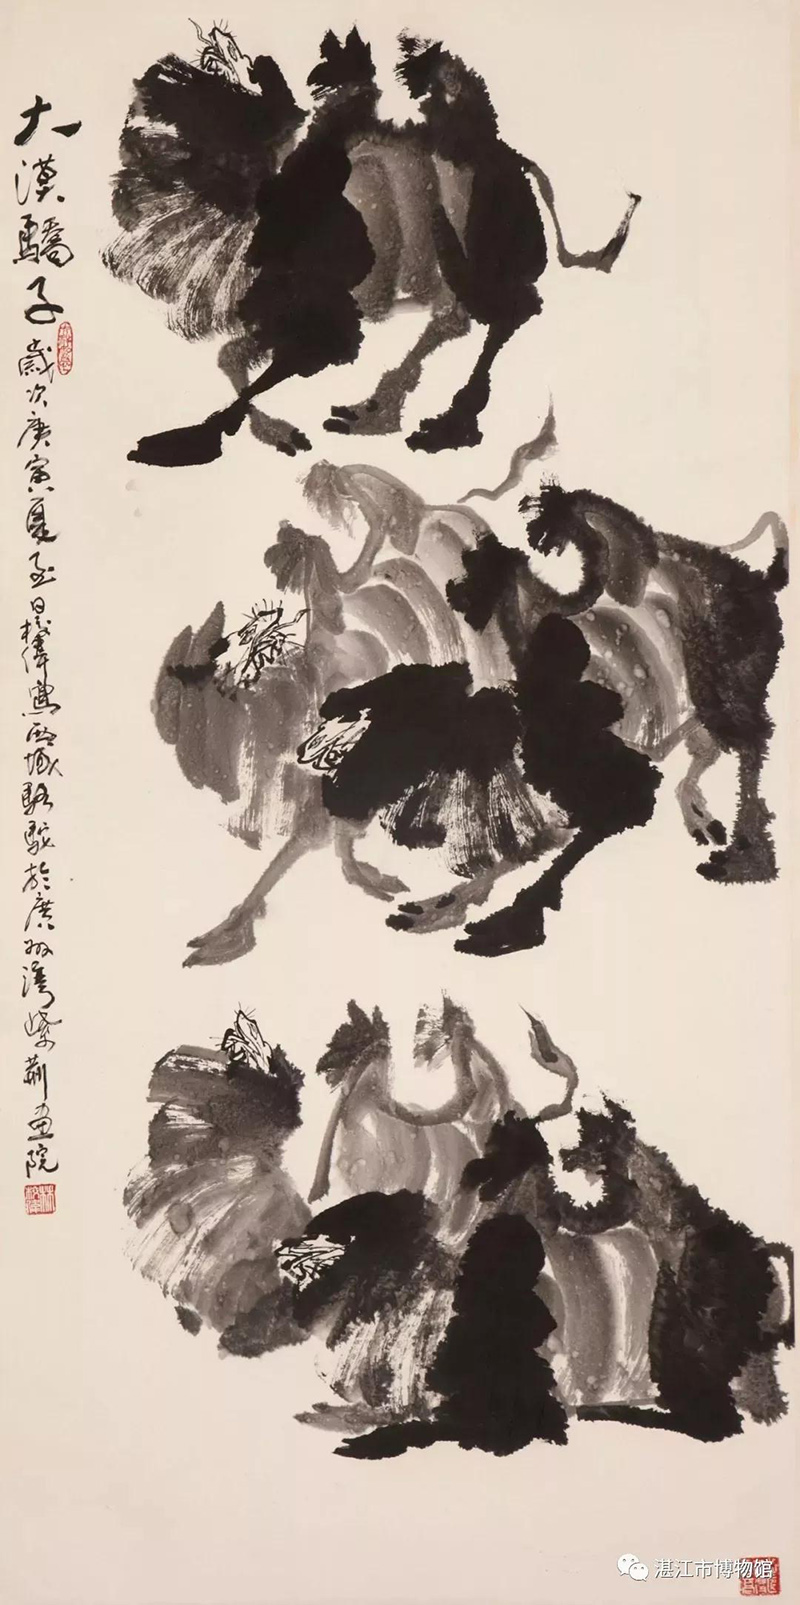 大漠驕子
歲次庚寅夏至日棧偉寫西域駱駝於廣州灣紫荊畫院
湛江市博物館